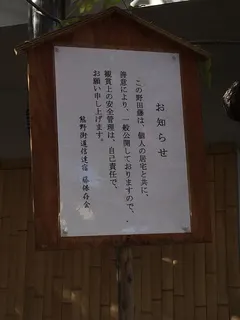 お知らせ
この野田藤は、個人の居宅と共に、
善意により、一般公開しておりますので、
観賞上の安全管理は、自己責任で、
お願い申し上げます。
熊野街道信達宿 藤保存会